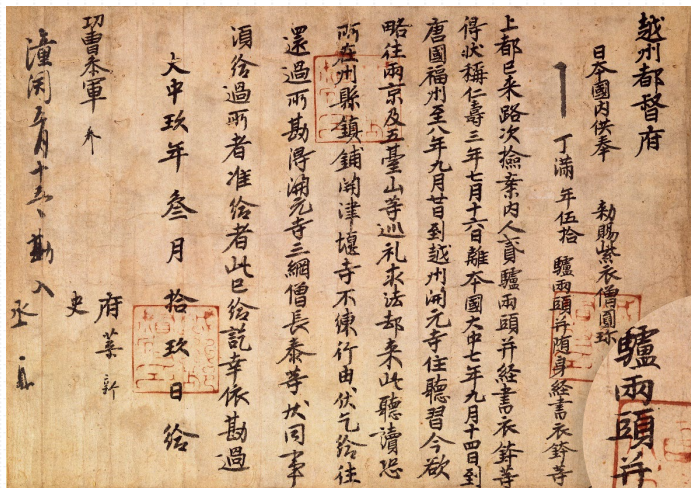 越州都督府
日本國内供奉 勅賜紫衣僧圓珎
丁滿 年伍拾 驢兩頭并随身経書衣鉢等
上都已来路次撿案内人貳驢兩頭并経書衣鉢等
得状稱仁壽三年七月十六日離夲國大中七年九月十四日到
唐國福州至八年九月廿日到越州開元寺住聽習今欲
略往兩京及五臺山等巡礼求法却来此聽讀恐
所在州縣鎮鋪關津堰寺不練行由伏乞給往
還過所勘得開元寺三綱僧長泰等状同事
須給過所者准給者此已給訖幸依勘過
大中玖年叄月拾玖日給
府葉新
功曹叅軍
史
潼関五月十五日勘入
丞
驢兩頭并